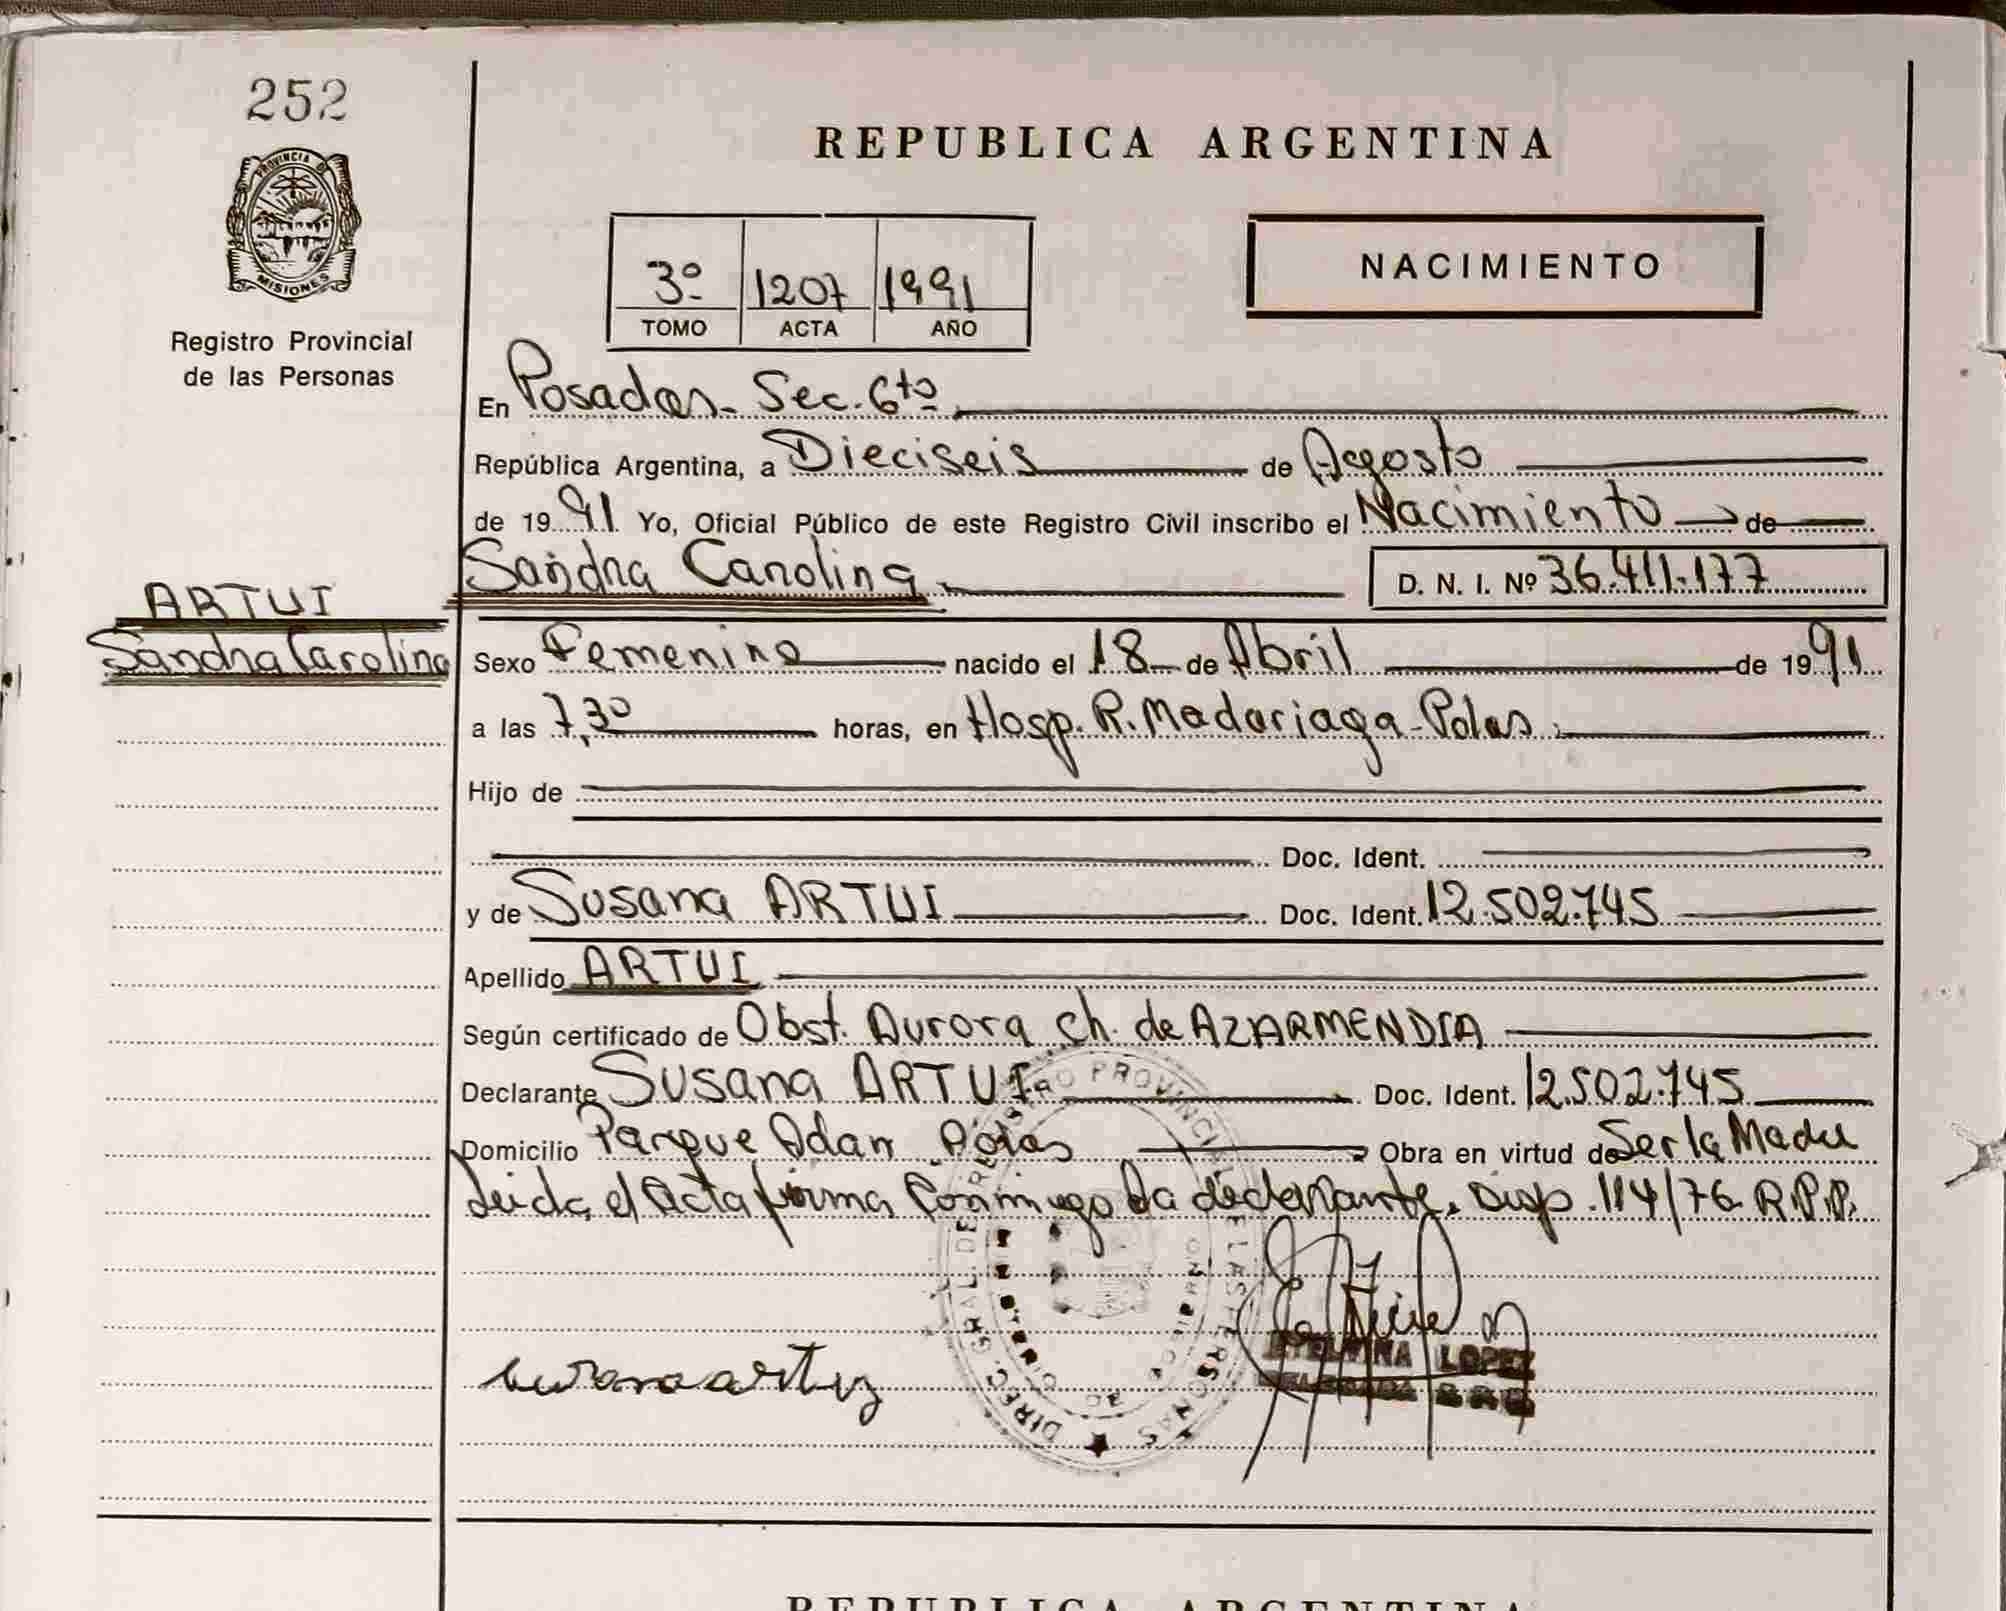 252
PROVINCIA DE
MISIONES
Registro Provincial
de las Personas
REPUBLICA ARGENTINA
NACIMIENTO
3º 1207 1991
TOMO ACTA AÑO
En Posadas - Sec. 6ta
República Argentina, a Dieciseis de Agosto
de 1991 Yo, Oficial Público de este Registro Civil inscribo el Nacimiento de
Sandra Carolina D. N. I. Nº 36.411.177
ARTUI
Sandra Carolina
Sexo Femenino nacido el 18 de Abril de 1991
a las 7,30 horas, en Hosp. R. Madariaga - Pdas.
Hijo de
Doc. Ident.
y de Susana ARTUI Doc. Ident. 12.502.745
Apellido ARTUI
Según certificado de Obst. Aurora Ch. de AZARMENDIA
Declarante Susana ARTUI Doc. Ident. 12.502.745
Domicilio Parque Adam Pdas Obra en virtud de Ser la Madre
Leida el Acta firma Conmigo La declarante. Disp. 114/76 R.P.P.
DIREC. GRAL. DE REGISTRO PROVINCIAL DE LAS PERSONAS
MINISTERIO DE GOBIERNO
susana artui
LOPEZ
REPUBLICA ARGENTINA